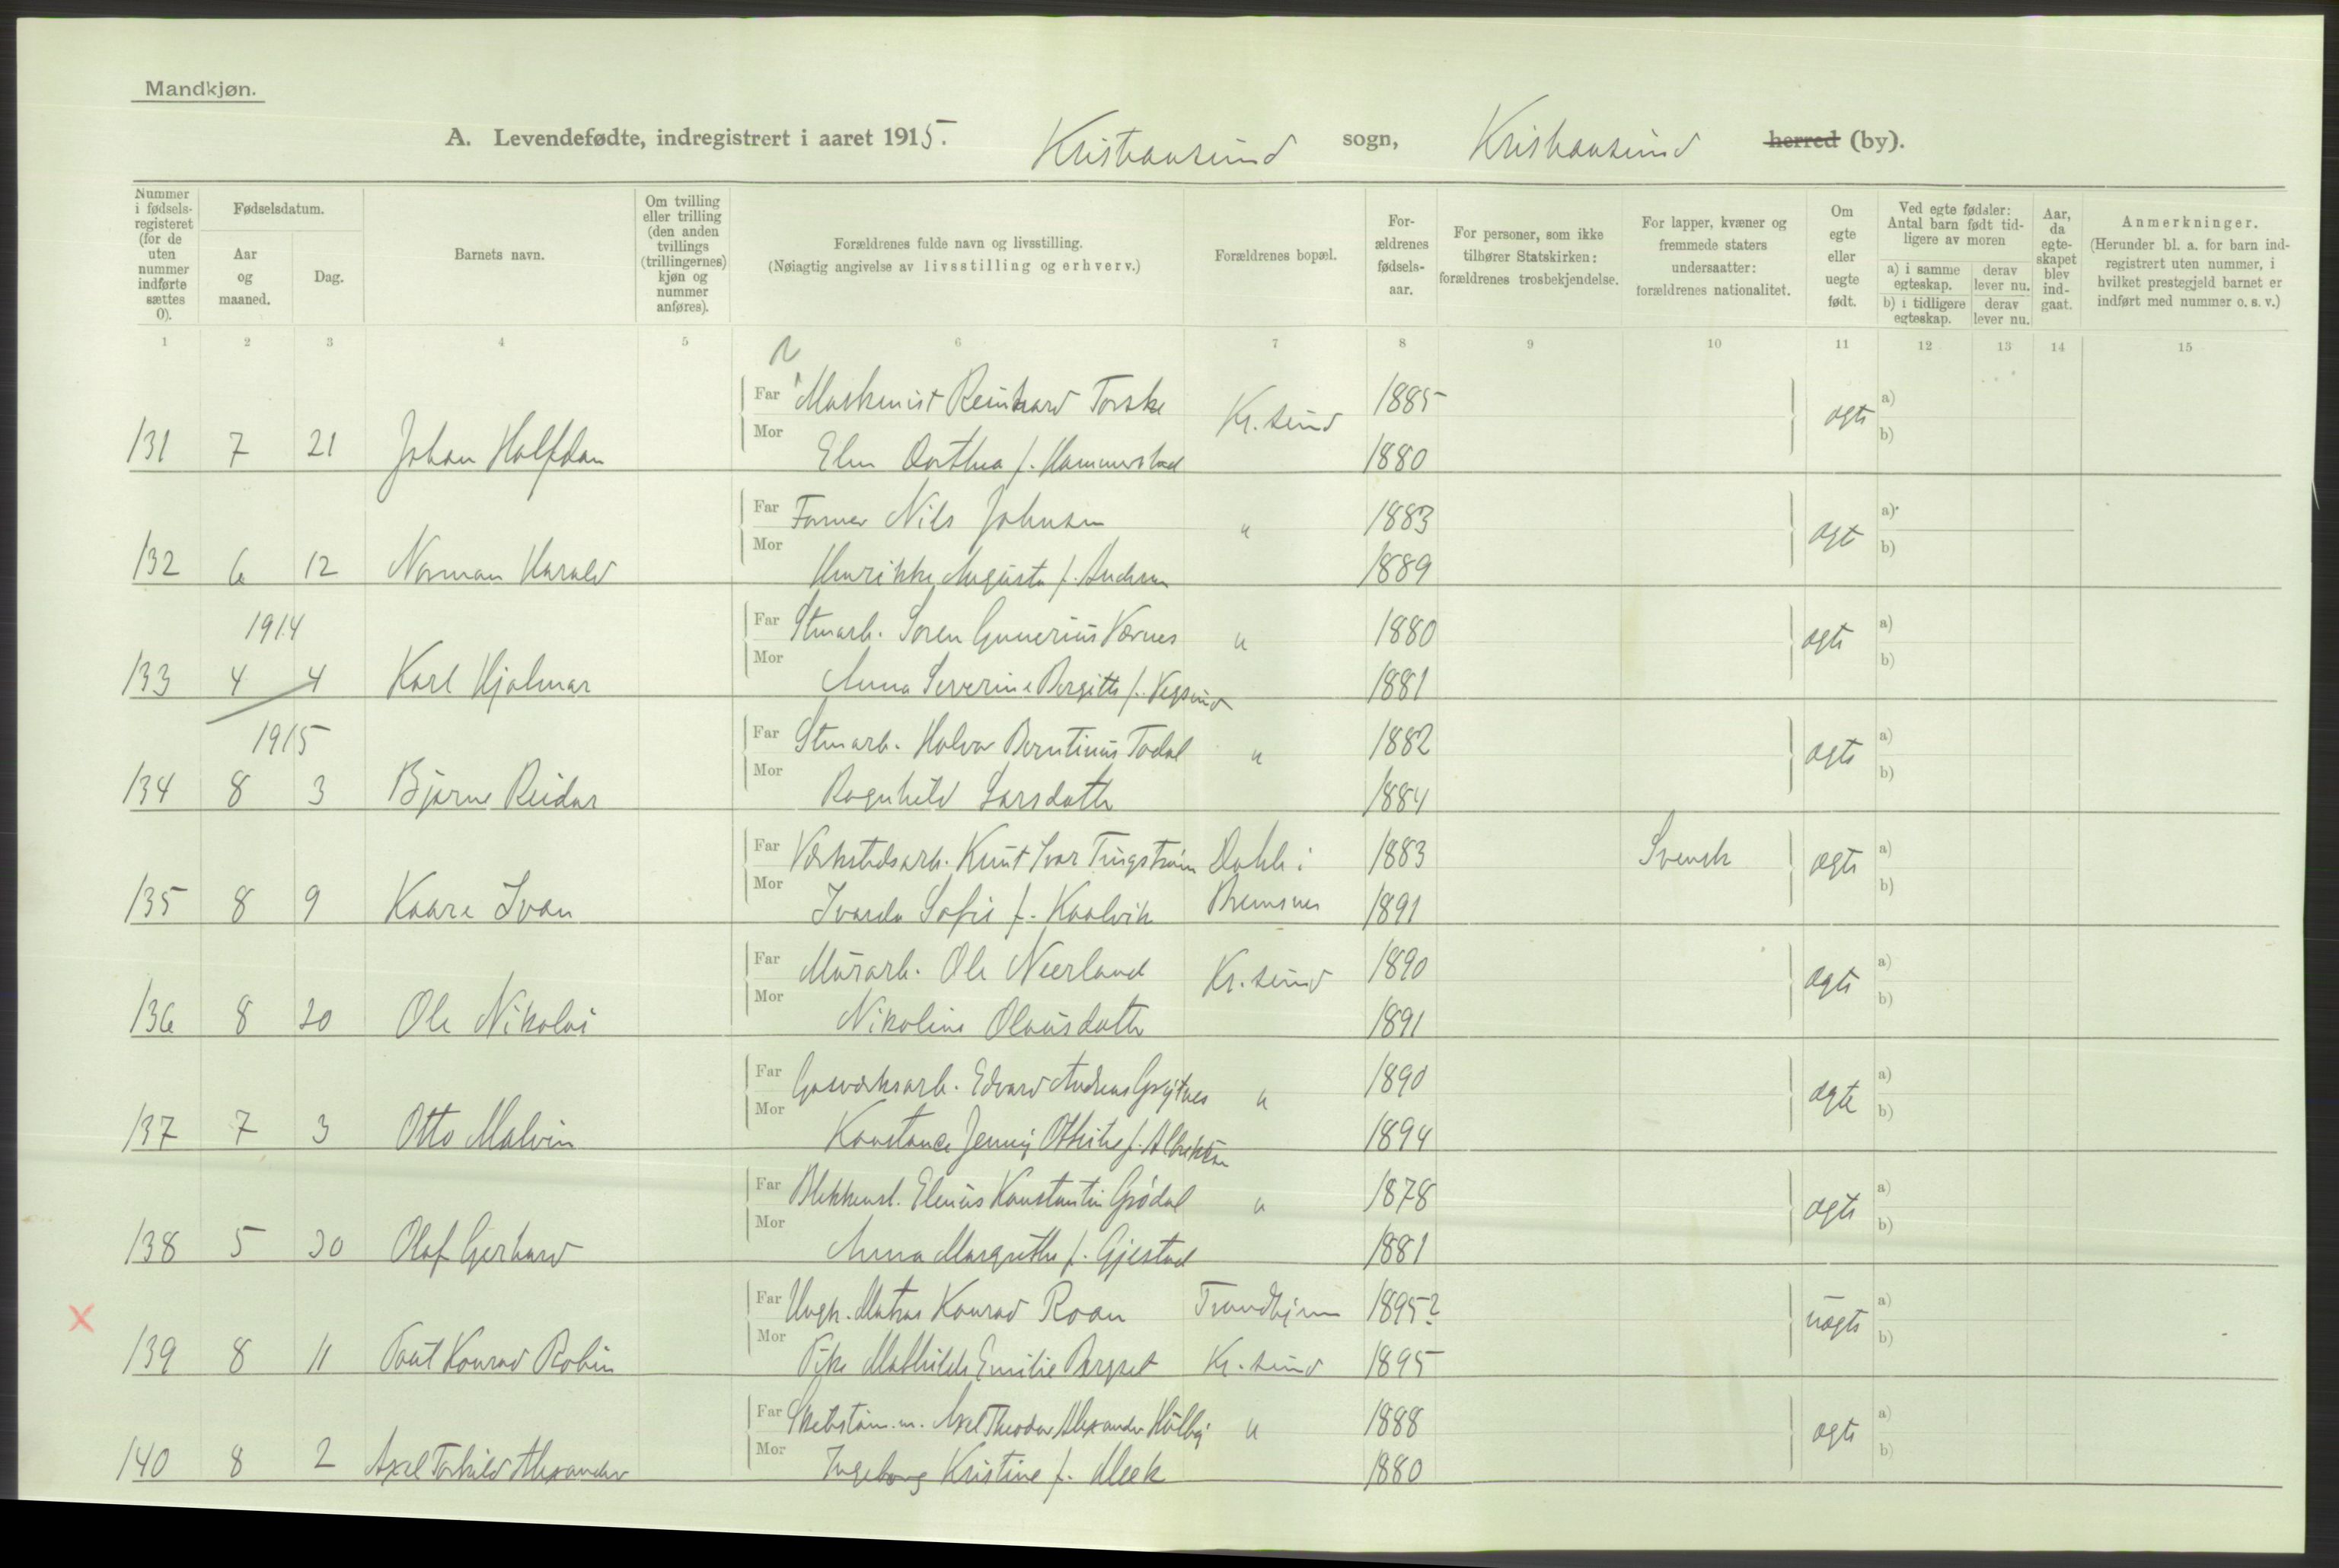 Mandkjøn.
A. Levendefødte, indregistrert i aaret 1915. Kristiansund sogn, Kristiansund herred (by).
Nummer i fødsels-registeret (for de uten nummer indførte sættes 0).
Fødselsdatum.
Aar og maaned.
Dag.
Barnets navn.
Om tvilling eller trilling (den anden tvillings (trillingernes) kjøn og nummer anføres).
Forældrenes fulde navn og livsstilling.
(Nøiagtig angivelse av livsstilling og erhverv.)
Forældrenes bopæl.
For-ældrenes fødsels-aar.
For personer, som ikke tilhører Statskirken: forældrenes trosbekjendelse.
For lapper, kvæner og fremmede staters undersaatter: forældrenes nationalitet.
Om egte eller uegte født.
Ved egte fødsler: Antal barn født tid-ligere av moren
a) i samme egteskap.
derav lever nu.
b) i tidligere egteskap.
derav lever nu.
Aar, da egte-skapet blev ind-gaat.
Anmerkninger.
(Herunder bl. a. for barn ind-registrert uten nummer, i hvilket prestegjeld barnet er indført med nummer o. s. v.)
1 2 3 4 5 6 7 8 9 10 11 12 13 14 15
Far Maskinist Reinhard Torske Kr.sund 1885 ægte a)
131 7 21 Johan Halfdan Mor Elen Dorthea f. Hammerstad 1880 b)
Far Former Nils Johnsen " 1883 ægt a)
132 6 12 Norman Harald Mor Henrikke Augusta f. Andersen 1889 b)
1914
Far Stuarb. Søren Gunerius Værnes " 1880 ægte a)
133 4 4 Karl Hjalmar Mor Anna Severine Bergitte f. Vegsund 1881 b)
1915
Far Stuarb. Halvor Berntinus Todal " 1882 ægte a)
134 8 3 Bjarne Reidar Mor Ragnhild Larsdatter 1884 b)
Far Verkstedsarb. Knut Ivar Tingstrøm Dahle i 1883 Svensk ægte a)
135 8 9 Kaare Ivan Mor Ivarda Sofie f. Kaalvik Bremsnes 1891 b)
Far Murarb. Ole Neerland Kr.sund 1890 ægte a)
136 8 20 Ole Nikolai Mor Nikoline Olausdatter 1891 b)
Far Gasverksarb. Edvard Andreas " 1890 ægte a)
137 7 3 Otto Malvin Mor Konstance Jenny f. Albrektsen 1894 b)
Far Blikkensl. Elenius Konstantin Grødal " 1878 ægte a)
138 5 30 Olaf Gerhard Mor Anna Margrethe f. Gjestad 1881 b)
X
Far Ungk. Matros Konrad Roan Trondhjem 1895? uægte a)
139 8 11 Paul Konrad Robin Mor Pike Mathilde Emilie Bergset Kr.sund 1895 b)
Far Axel Theodor Alexander " 1888 ægte a)
140 8 2 Axel Torkild Alexander Mor Ingeborg Kristine f. Meek 1880 b)